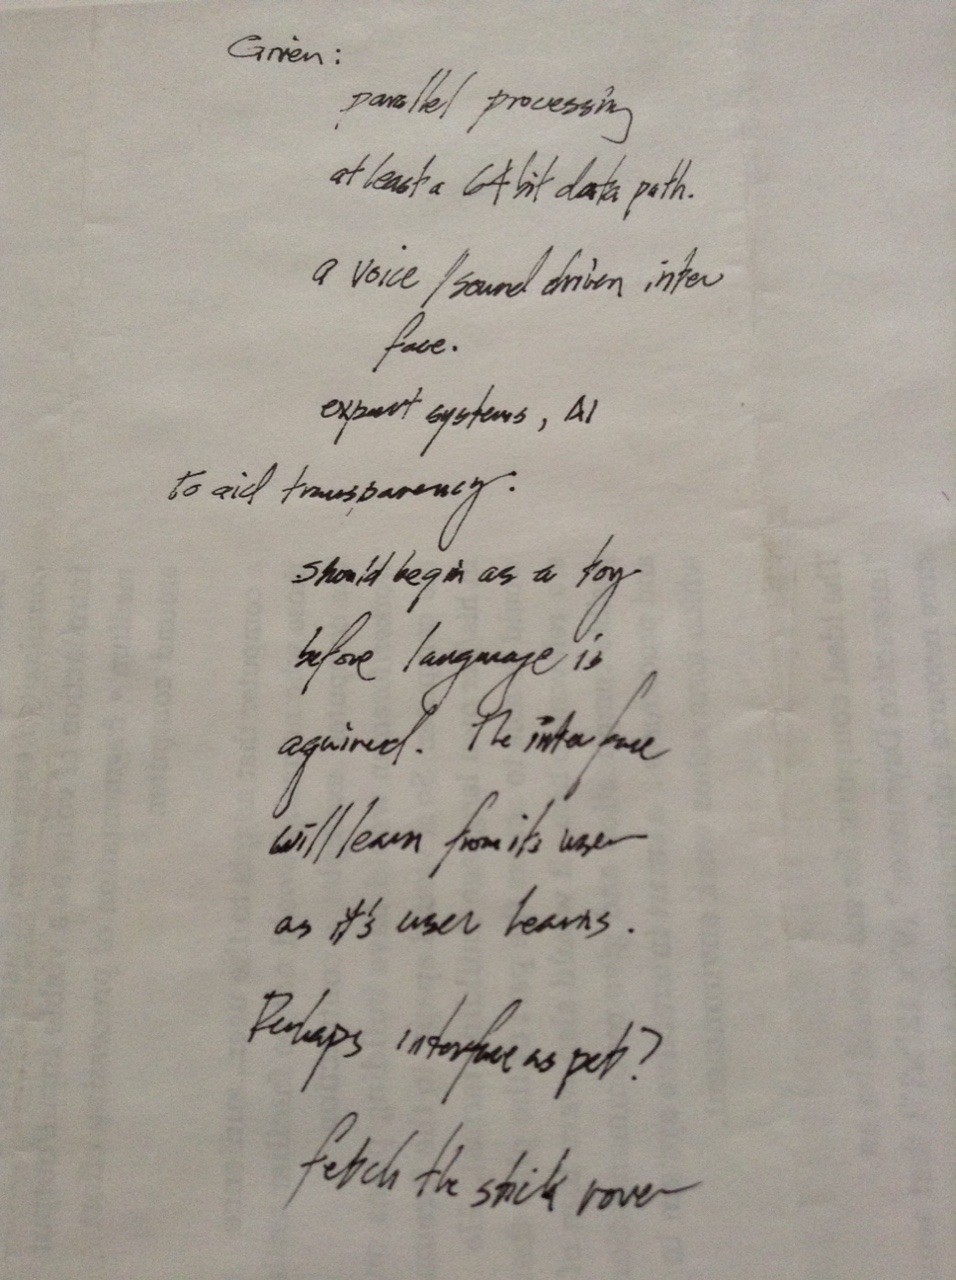 Given:
parallel processing
at least a 64 bit data path.
a voice / sound driven inter
face.
expert systems, AI
to aid transparency.
should begin as a toy
before language is
aquired. The interface
will learn from its user
as it's user learns.
Perhaps interface as pet?
fetch the stick rover